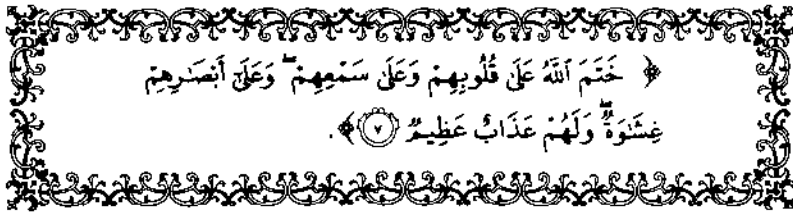 ﴿ خَتَمَ ٱللَّهُ عَلَىٰ قُلُوبِهِمْ وَعَلَىٰ سَمْعِهِمْ ۖ وَعَلَىٰٓ أَبْصَـٰرِهِمْ
غِشَـٰوَةٌ ۖ وَلَهُمْ عَذَابٌ عَظِيمٌ ٧ ﴾.